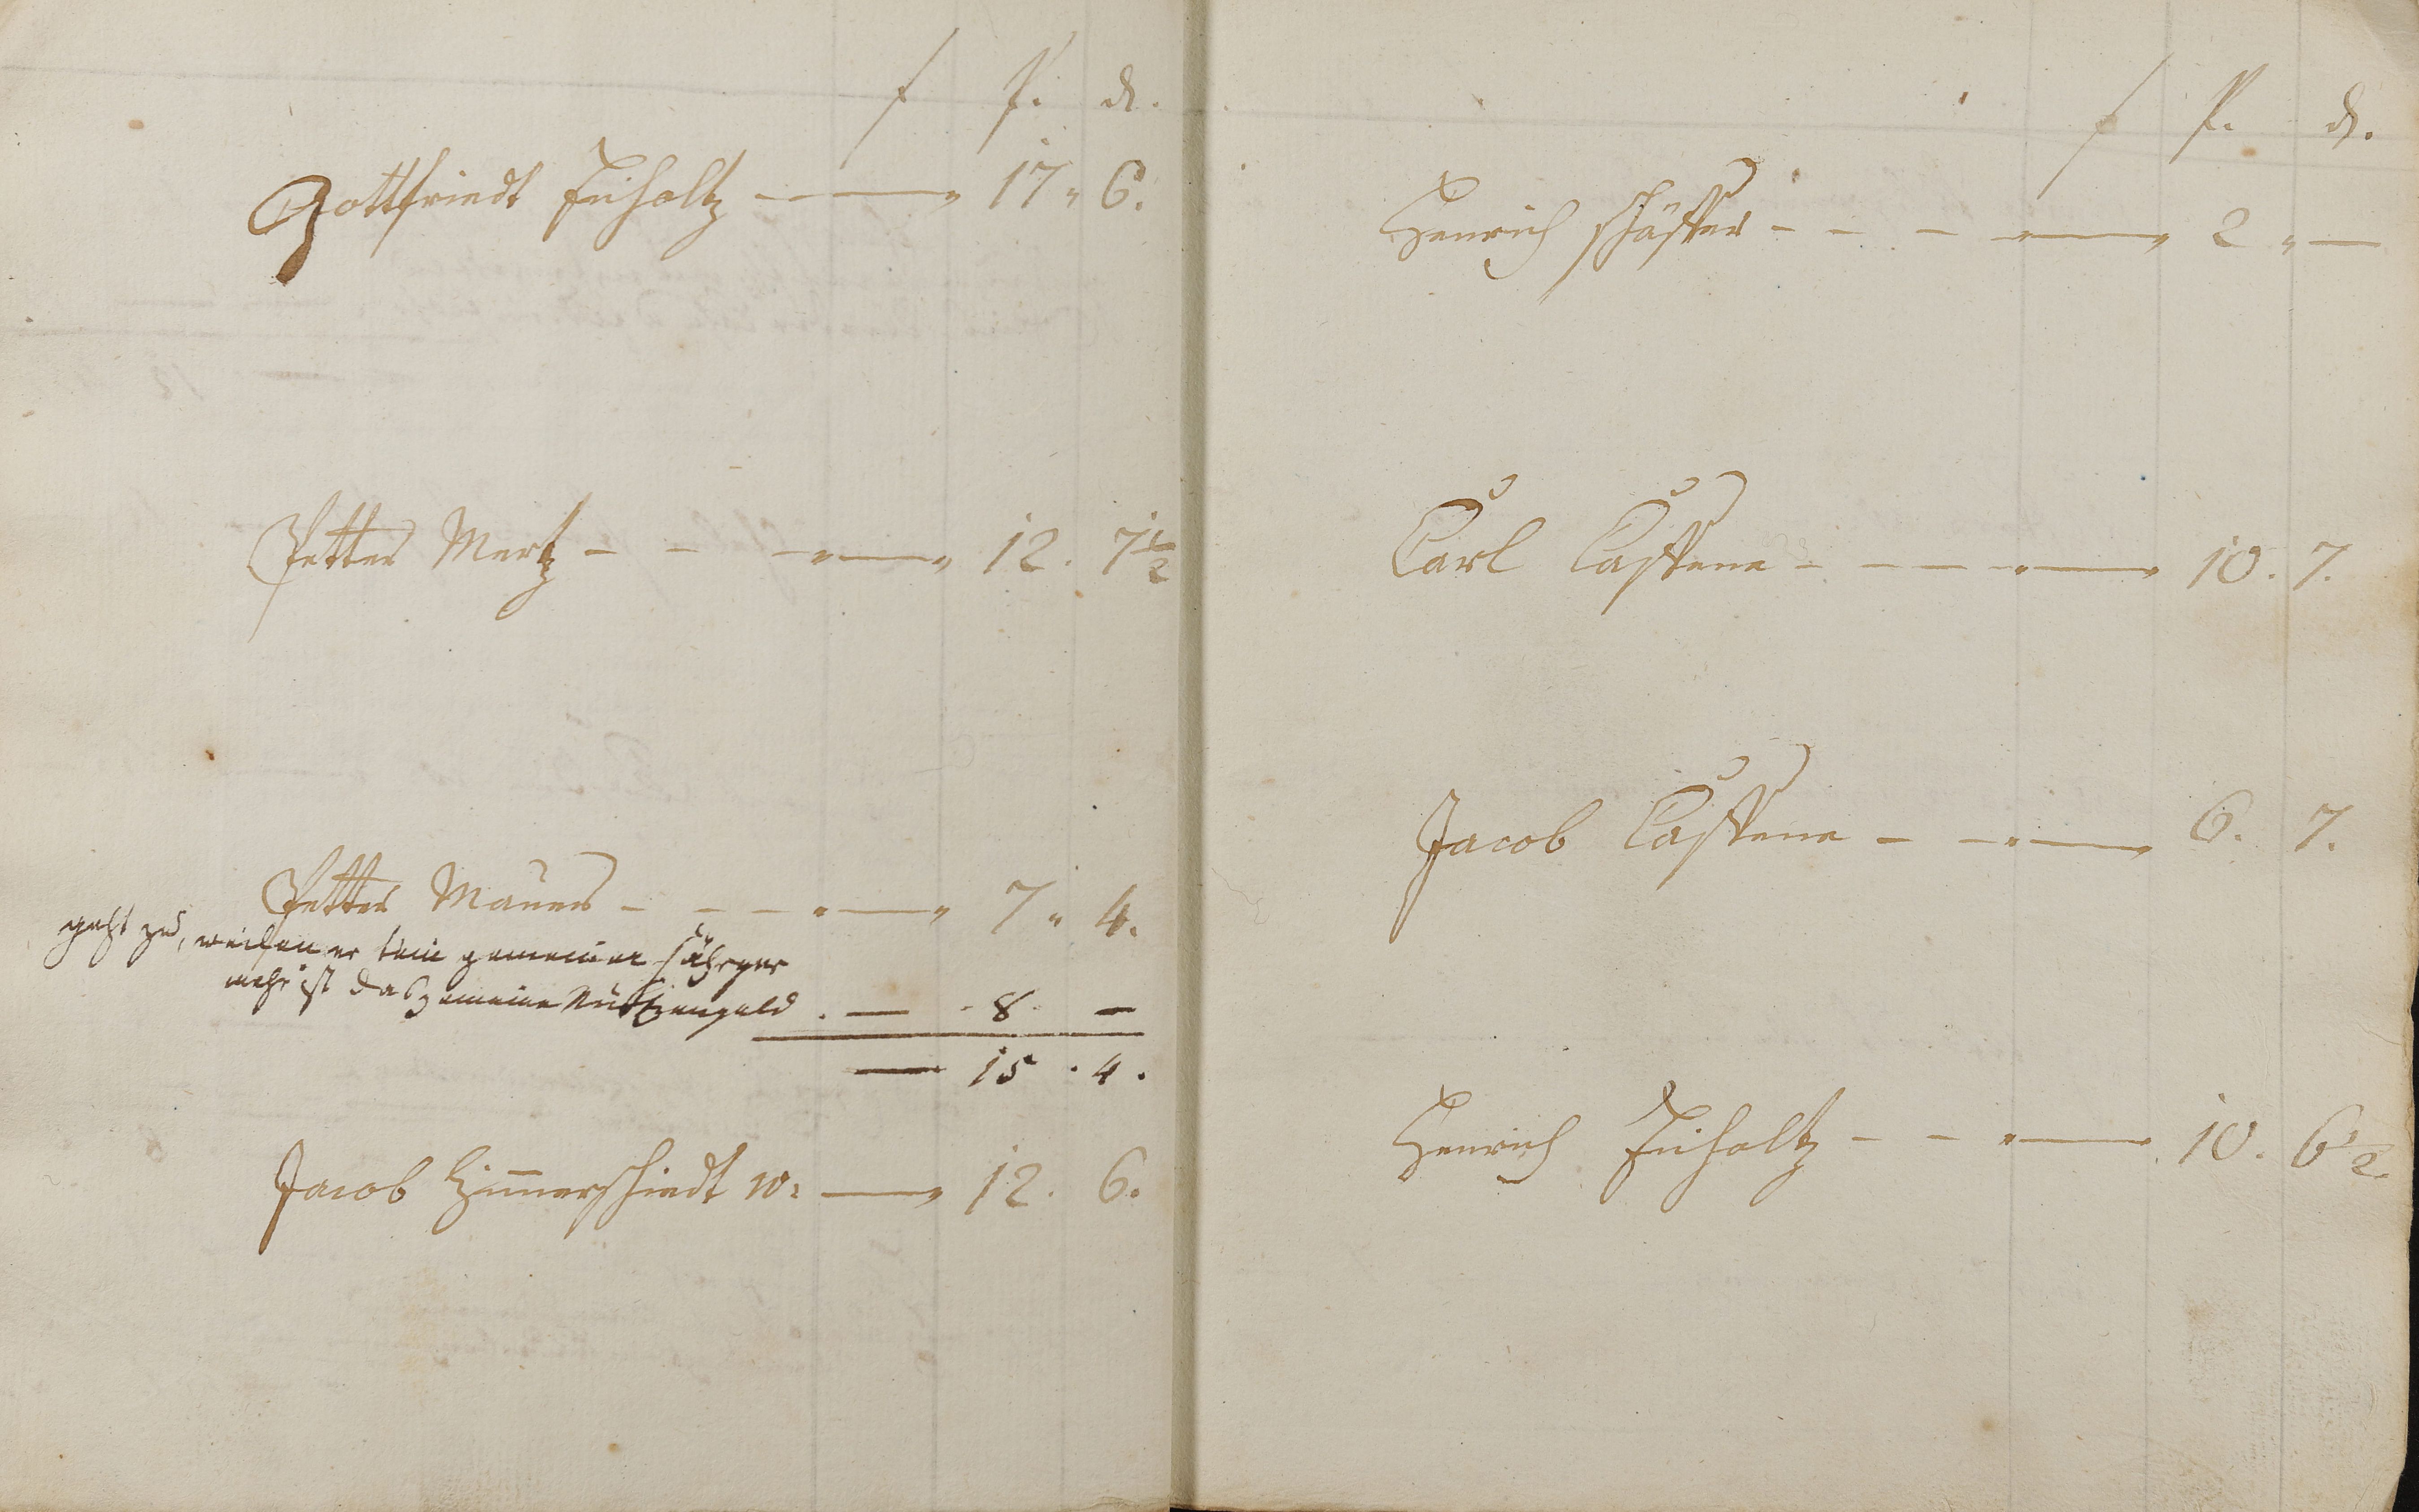 f ß. d.
Gottfriedt Eicholtz — " 17 " 6.
Petter Mertz - - - " — " 12. 7 1/2
Petter Maurer - - - " — " 7 " 4.
geht zu, weilen er kein gemeiner
mehr ist das gemeine Nutzengeld . — 8 —
— 15 . 4 .
Jacob Himmerschiedt w: — " 12. 6.
f ß. d.
Henrich schäffer - - - " — " 2 " —
Carl Castene - - - " — " 10. 7.
Jacob Castene - - " — " 6. 7.
Henrich Eicholtz - - " — 10. 6 1/2